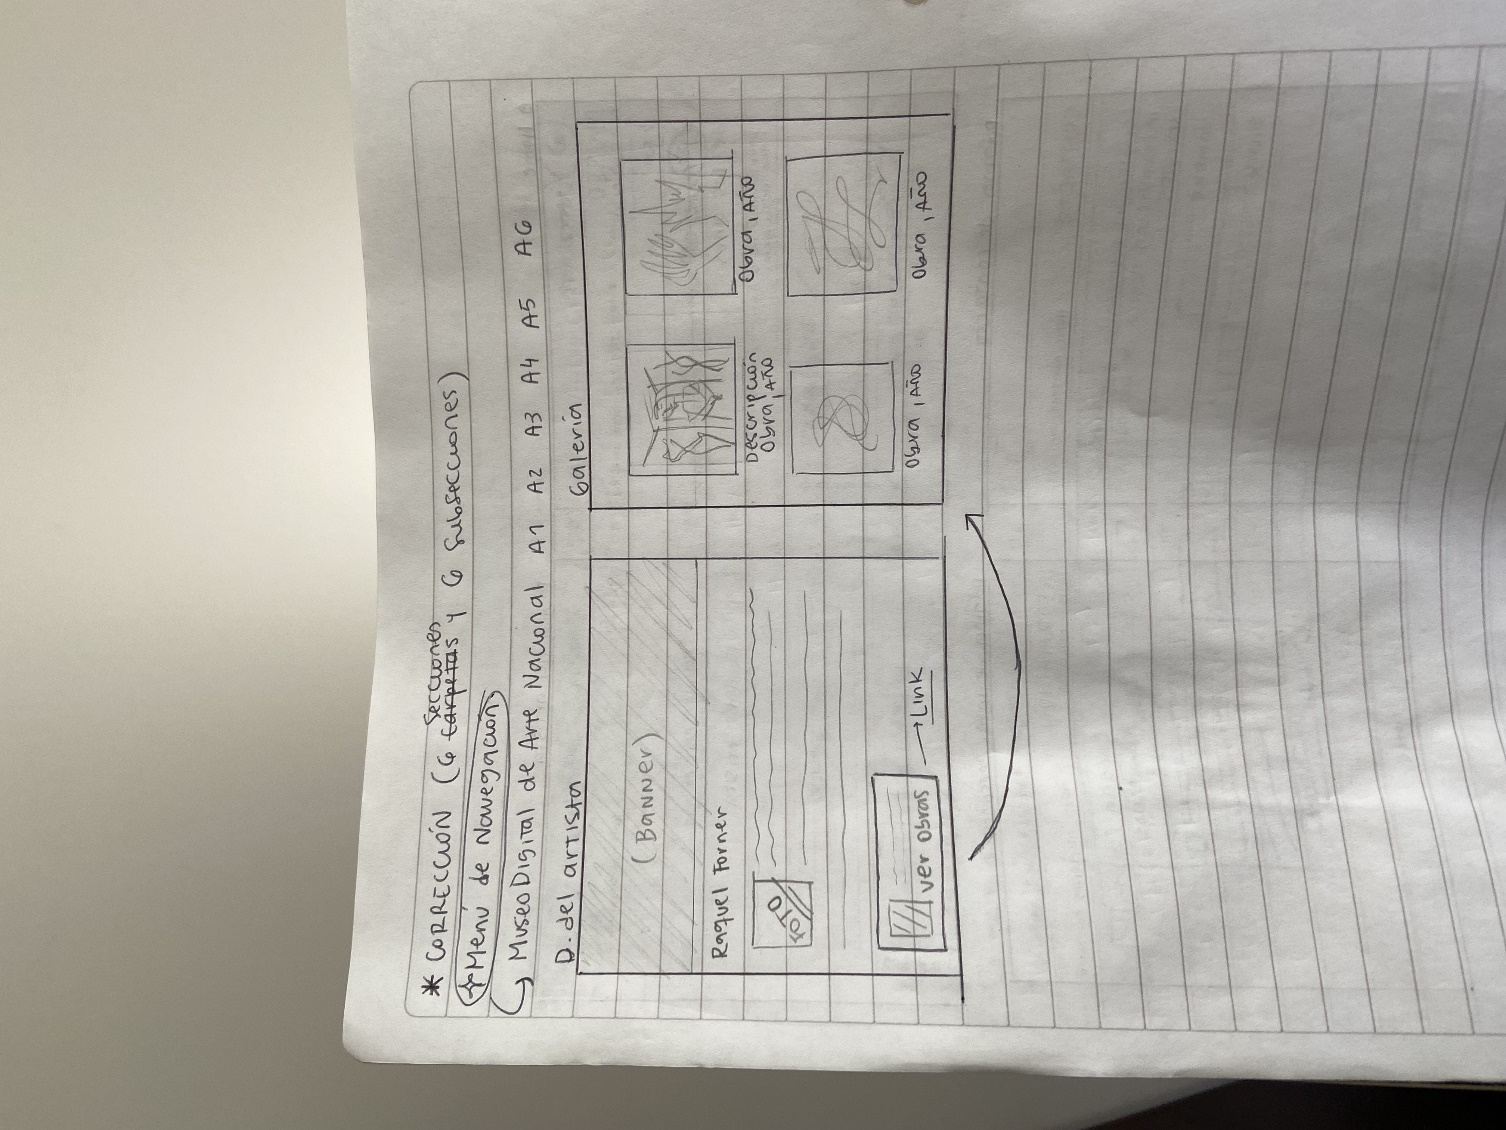 * CORRECCIÓN (6 carpetas secciones y 6 subsecciones)
Menú de Navegación
Museo Digital de Arte Nacional A1 A2 A3 A4 A5 A6
D. del artista
(BANNER)
Raquel Forner
FOTO
ver obras
→ Link
Galería
Descripción
Obra, Año
Obra, Año
Obra, Año
Obra, Año